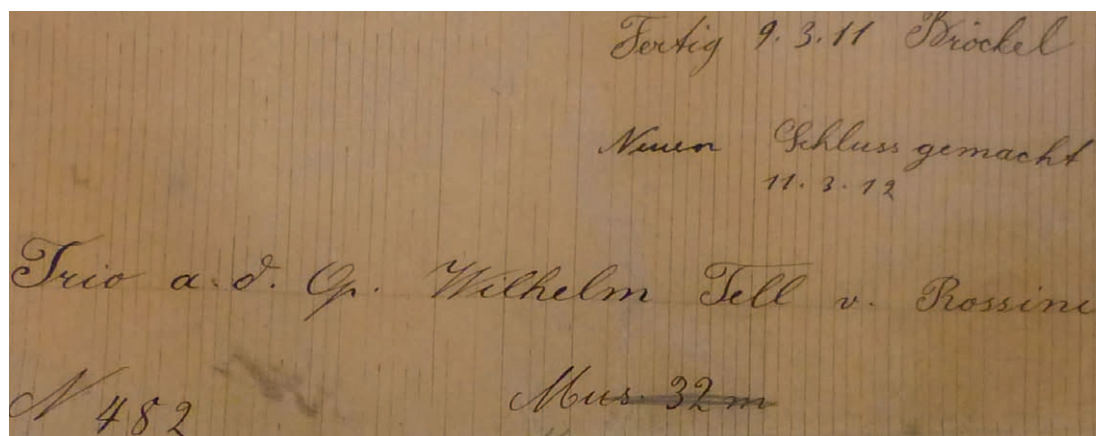 Fertig 9.3.11 Bröckel
Neuen Schluss gemacht
11.3.12
Trio a.d. Op. Wilhelm Tell v. Rossini
N 482 Mus. 32m